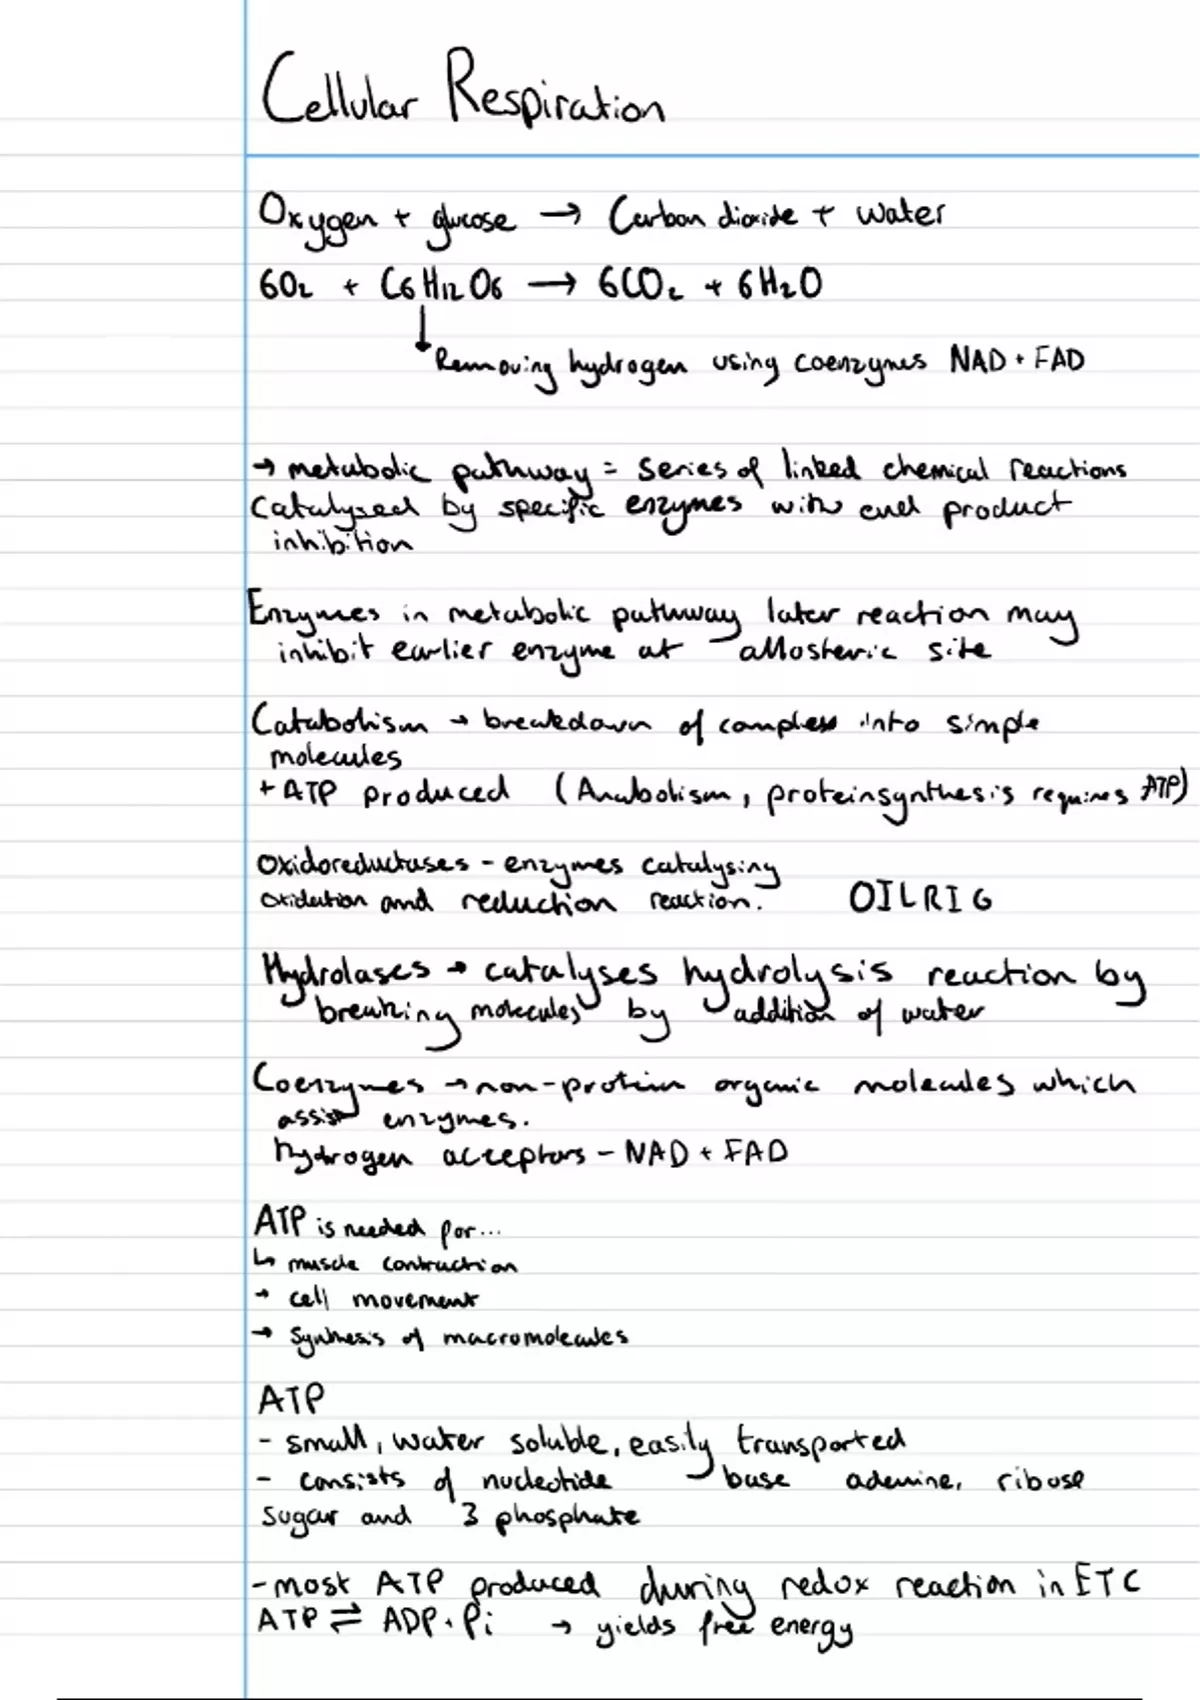 Cellular Respiration
Oxygen + glucose → Carbon dioxide + water
6O₂ + C₆H₁₂O₆ → 6CO₂ + 6H₂O
↓
Removing hydrogen using coenzymes NAD + FAD
→ metabolic pathway = series of linked chemical reactions
catalysed by specific enzymes with end product
inhibition
Enzymes in metabolic pathway later reaction may
inhibit earlier enzyme at allosteric site
Catabolism → breakdown of complex into simple
molecules
+ ATP produced (Anabolism, protein synthesis requires ATP)
oxidoreductases - enzymes catalysing
oxidation and reduction reaction. OILRIG
Hydrolases → catalyses hydrolysis reaction by
breaking molecules by addition of water
Coenzymes → non-protein organic molecules which
assist enzymes.
hydrogen acceptors - NAD + FAD
ATP is needed for...
↳ muscle contraction
→ cell movement
→ synthesis of macromolecules
ATP
- small, water soluble, easily transported
- consists of nucleotide base adenine, ribose
sugar and 3 phosphate
- most ATP produced during redox reaction in ETC
ATP ⇌ ADP + Pi → yields free energy